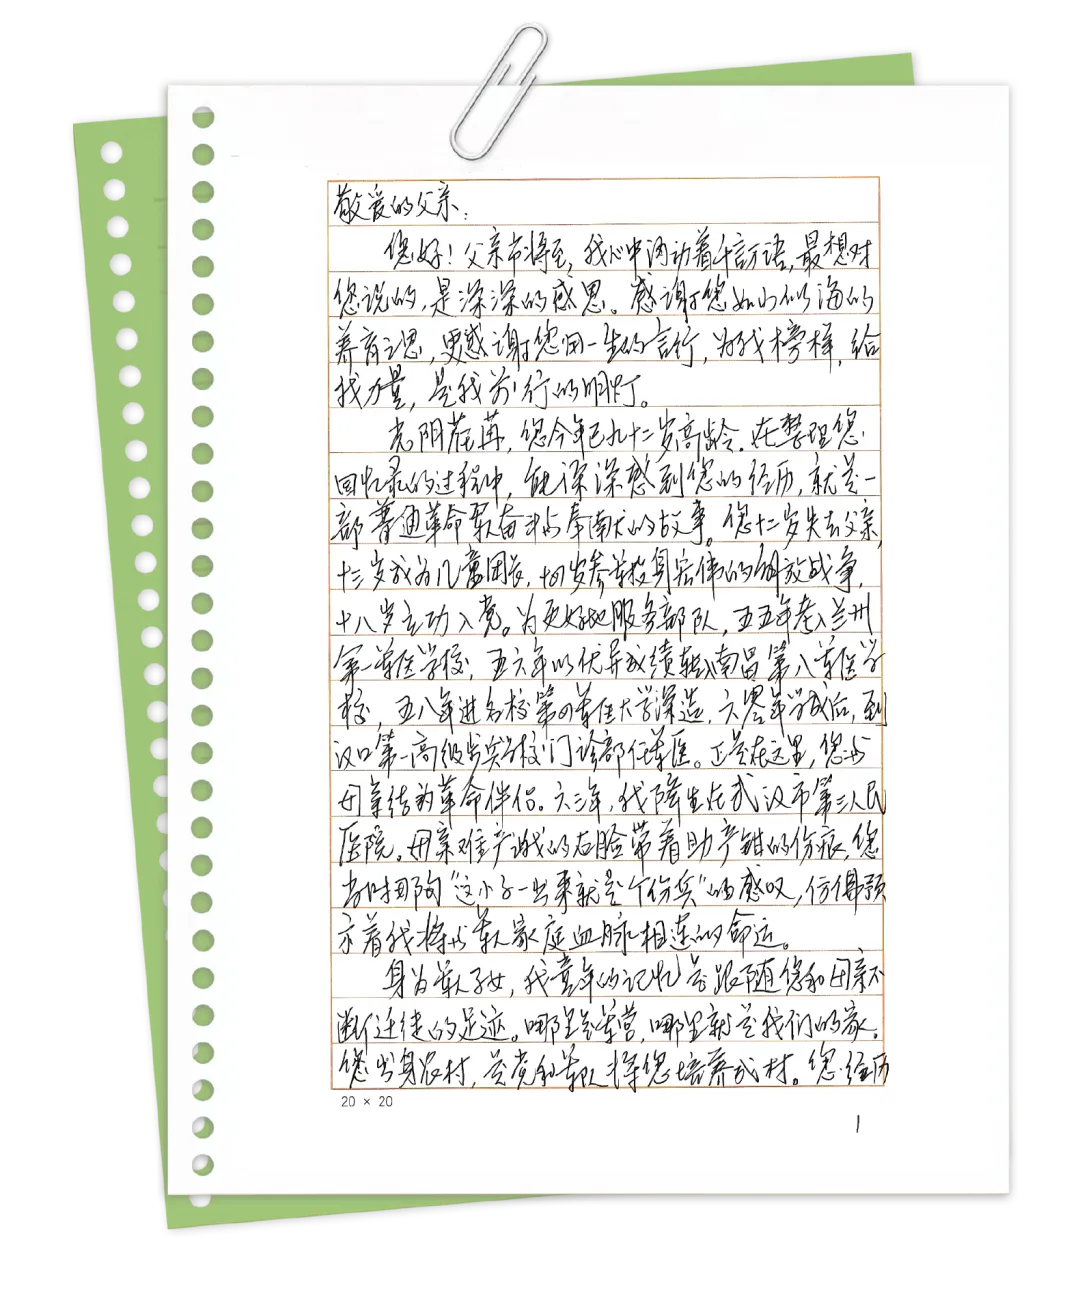 敬爱的父亲：
您好！父亲节将至，我心中涌动着千言万语，最想对
您说的，是深深的感恩。感谢您如山似海的
养育之恩，更感谢您用一生的言行，为我榜样，给
我力量，是我前行的明灯。
光阴荏苒，您今年已九十二岁高龄。在整理您
回忆录的过程中，能深深感到您的经历，就是一
部普通革命军奋斗与奉献的故事。您十二岁失去父亲，
十三岁成为儿童团长，十四岁参军投身宏伟的解放战争，
十八岁主动入党。为更好地服务部队，五五年考入兰州
第一军医学校，五六年以优异成绩转入南昌第八军医学
校，五八年进名校第四军医大学深造，六零年学成后，到
汉口第一高级步兵学校门诊部任军医。正是在这里，您与
母亲结为革命伴侣。六三年，我降生在武汉市第三人民
医院。母亲难产，我的右脸带着助产钳的伤痕，您
当时那句“这小子一出来就是个伤兵”的感叹，仿佛预
示着我将与军人家庭血脉相连的命运。
身为军人子女，我童年的记忆是跟随您和母亲不
断迁徙的足迹。哪里是军营，哪里就是我们的家。
您出身农村，是党和军队将您培养成材。您经历
20 × 20
1